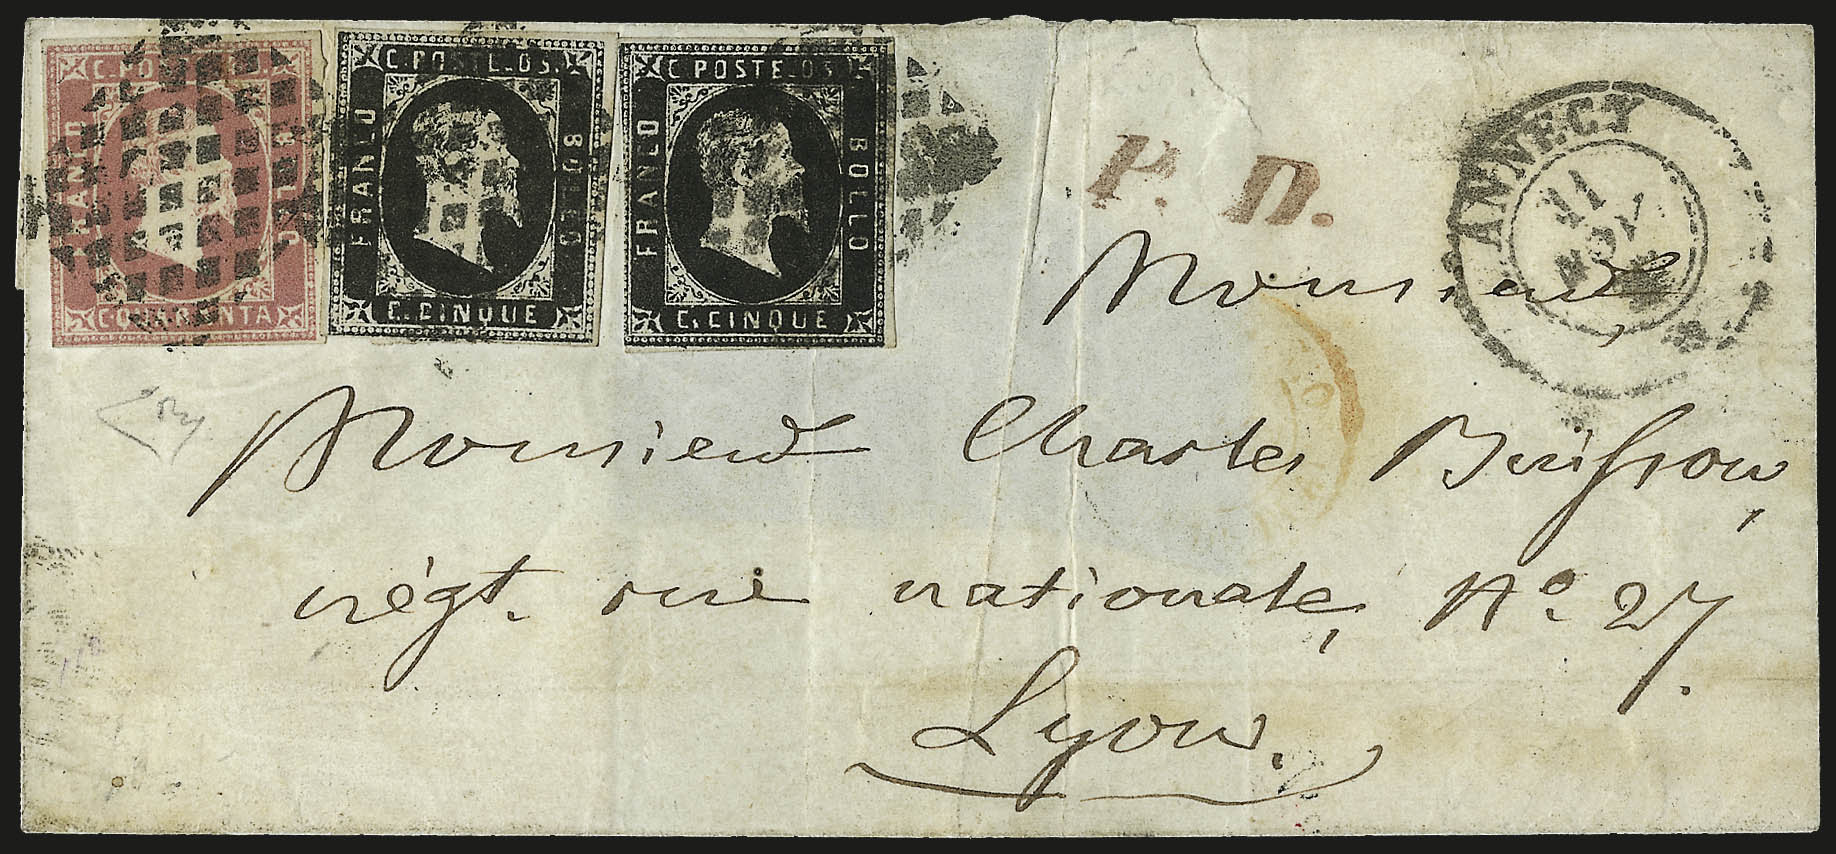 C. POSTE. O S.
FRANCO
BOLLO
C. QUARANTA
C. POSTE. O S.
FRANCO
BOLLO
C. CINQUE
C. POSTE. O S.
FRANCO
BOLLO
C. CINQUE
P. D.
ANNECY
11
NOV
Monsieur
Monsieur Charles Buisson,
négt. rue nationale, No. 27.
Lyon.